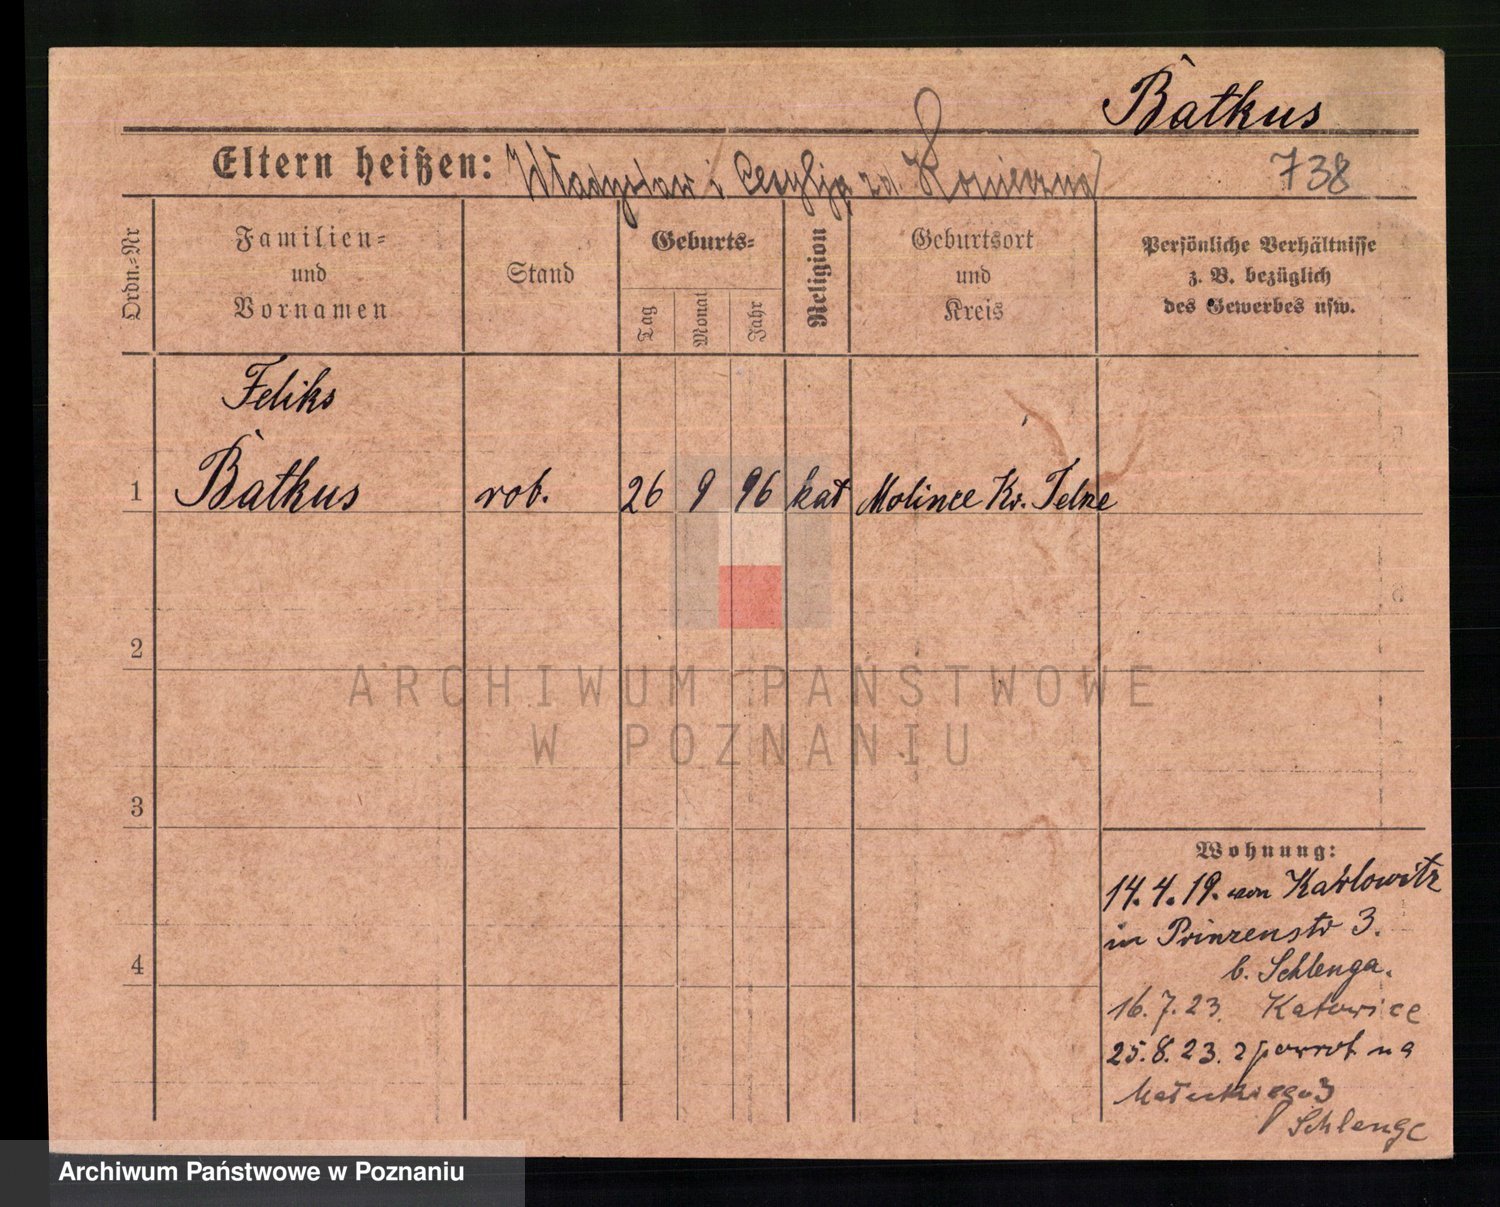 Batkus
Eltern heißen: Władysław i Cecylja
738
Ordn.-Nr
Familien-
und
Vornamen
Stand
Geburts-
Tag
Monat
Jahr
Religion
Geburtsort
und
Kreis
Persönliche Verhältnisse
z. B. bezüglich
des Gewerbes usw.
Feliks
1 Batkus rob. 26 9 96 kat Molince Kr.
2
3
4
Wohnung:
14.4.19. von Karlowitz
in Prinzenstr 3.
b. Schlenga.
16.7.23. Katowice
25.8.23. zpowrot na
Małeckiego 3
Schlenge
ARCHIWUM PAŃSTWOWE
W POZNANIU
Archiwum Państwowe w Poznaniu